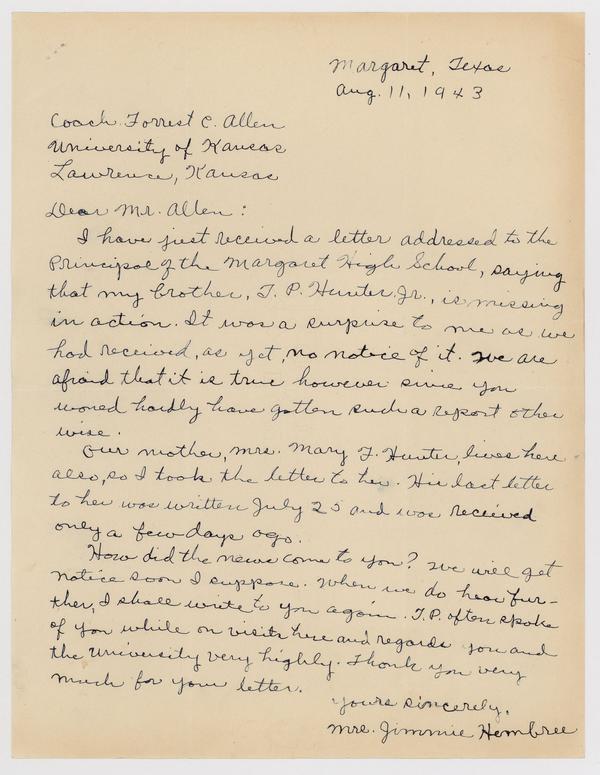 Margaret, Texas
Aug. 11, 1943
Coach Forrest C. Allen
University of Kansas
Lawrence, Kansas
Dear Mr. Allen:
I have just received a letter addressed to the
Principal of the Margaret High School, saying
that my brother, T. P. Hunter, Jr., is missing
in action. It was a surprise to me as we
had received, as yet, no notice of it. We are
afraid that it is true however since you
would hardly have gotten such a report other
wise.
Our mother, Mrs. Mary F. Hunter, lives here
also, so I took the letter to her. His last letter
to her was written July 25 and was received
only a few days ago.
How did the news come to you? We will get
notice soon I suppose. When we do hear fur-
ther, I shall write to you again. T.P. often spoke
of you while on visits here and regards you and
the University very highly. Thank you very
much for your letter.
Yours sincerely,
Mrs. Jimmie Hembree